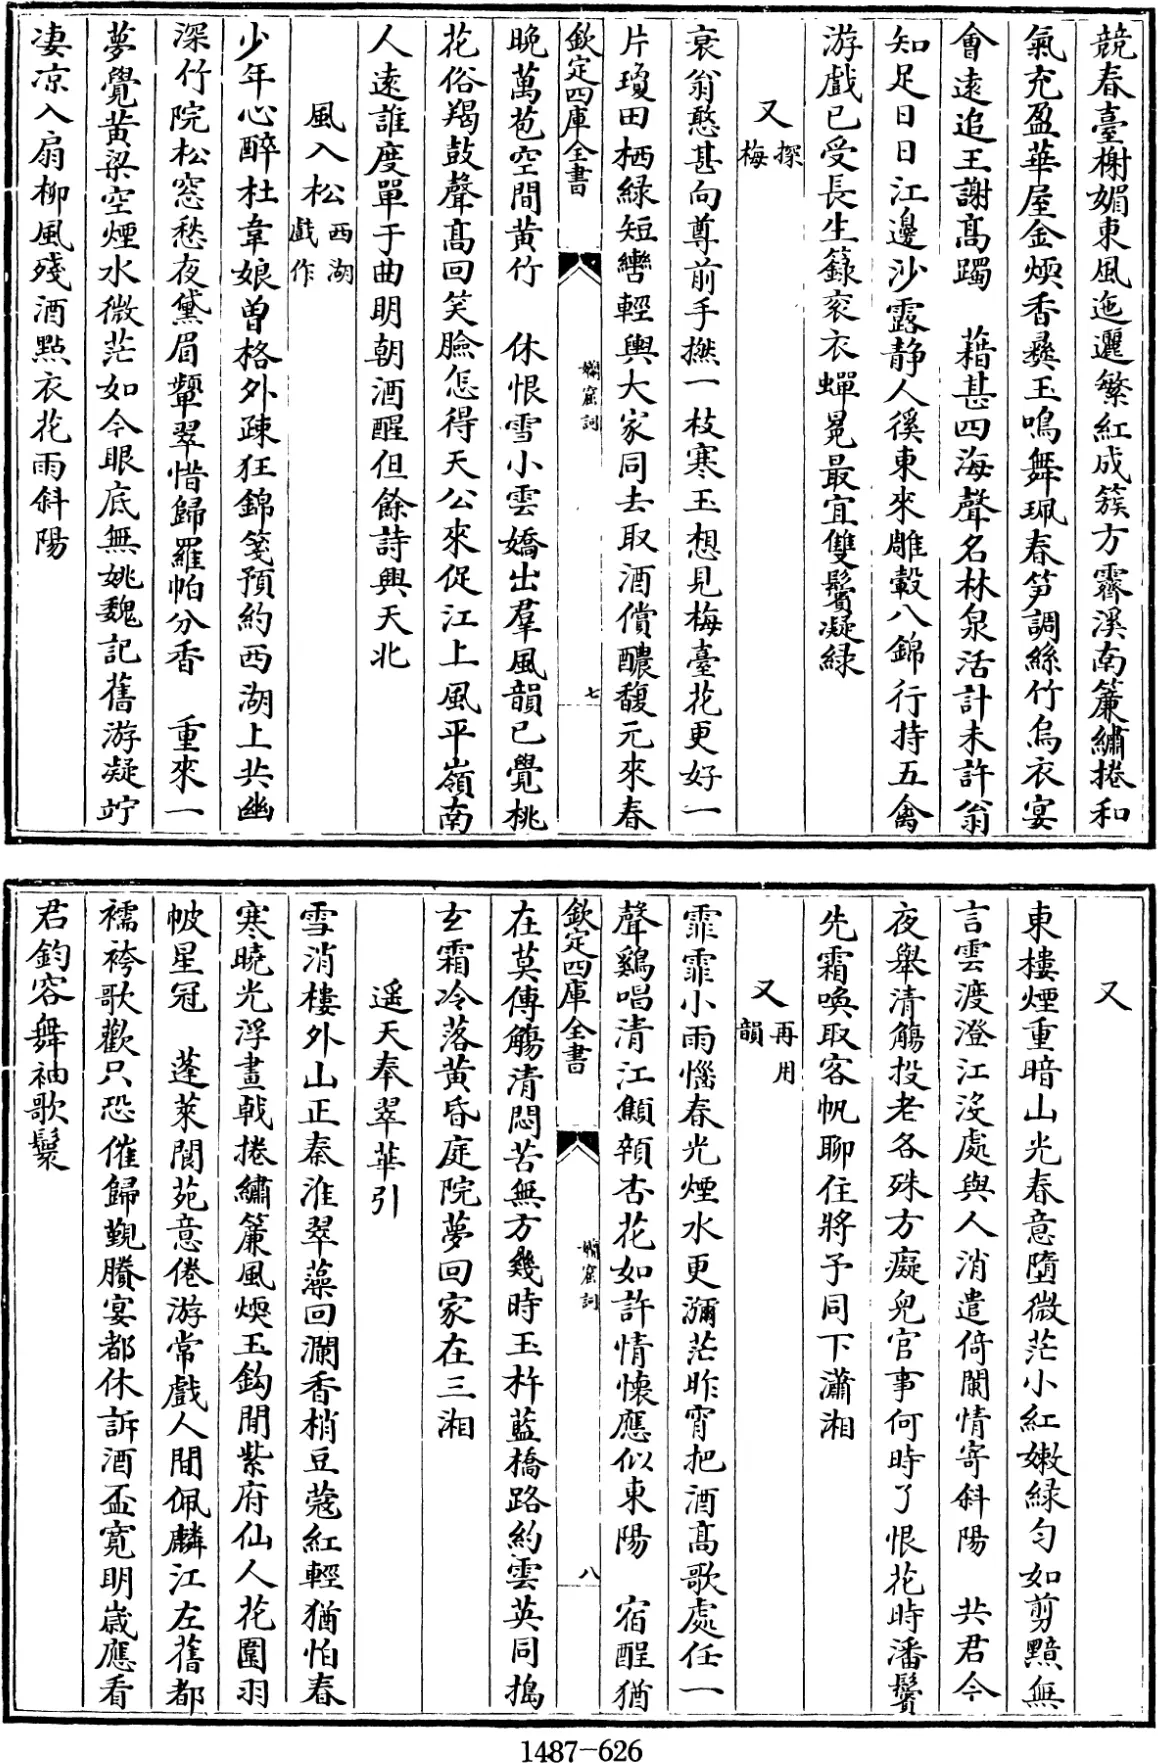 競春臺榭媚東風迤邐繁紅成簇方霽溪南簾繡捲和
氣充盈華屋金煗香彞玉鳴舞珮春笋調絲竹烏衣宴
會遠追王謝髙躅　藉甚四海聲名林泉活計未許翁
知足日日江邊沙露静人徯東來雕轂八錦行持五禽
游戲已受長生籙衮衣蟬冕最宜雙鬢凝緑
又探梅
衰翁憨甚向尊前手撚一枝寒玉想見梅臺花更好一
片瓊田栖緑短轡輕輿大家同去取酒償醲馥元來春
欽定四庫全書
嬾窟詞
七
晚萬苞空間黄竹　休恨雪小雲嬌出羣風韻已覺桃
花俗羯鼓聲髙回笑臉怎得天公來促江上風平嶺南
人遠誰度單于曲明朝酒醒但餘詩興天北
風入松西湖戲作
少年心醉杜韋娘曽格外疎狂錦箋預約西湖上共幽
深竹院松窓愁夜黛眉顰翠惜歸羅帕分香　重來一
夢覺黄粱空煙水微茫如今眼底無姚魏記舊游凝竚
凄凉入扇柳風殘酒㸃衣花雨斜陽
又
東樓煙重暗山光春意墮微茫小紅嫩緑匀如剪黯無
言雲渡澄江没處與人消遣倚闌情寄斜陽　共君今
夜舉清觴投老各殊方癡兒官事何時了恨花時潘鬢
先霜喚取客帆聊住將予同下瀟湘
又再用韻
霏霏小雨惱春光煙水更瀰茫昨宵把酒髙歌處任一
聲鷄唱清江顦顇杏花如許情懷應似東陽　宿酲猶
欽定四庫全書
嬾窟詞
八
在莫傳觴清悶苦無方幾時玉杵藍橋路約雲英同搗
玄霜冷落黄昏庭院夢回家在三湘
遥天奉翠華引
雪消樓外山正秦淮翠藻回瀾香梢豆蔻紅輕猶怕春
寒曉光浮畫戟捲繡簾風煗玉鈎閒紫府仙人花圍羽
帔星冠　蓬萊閬苑意倦游常戲人間佩麟江左舊都
襦袴歌歡只恐催歸覲賸宴都休訴酒盃寛明嵗應看
君鈞容舞袖歌鬟
1487-626